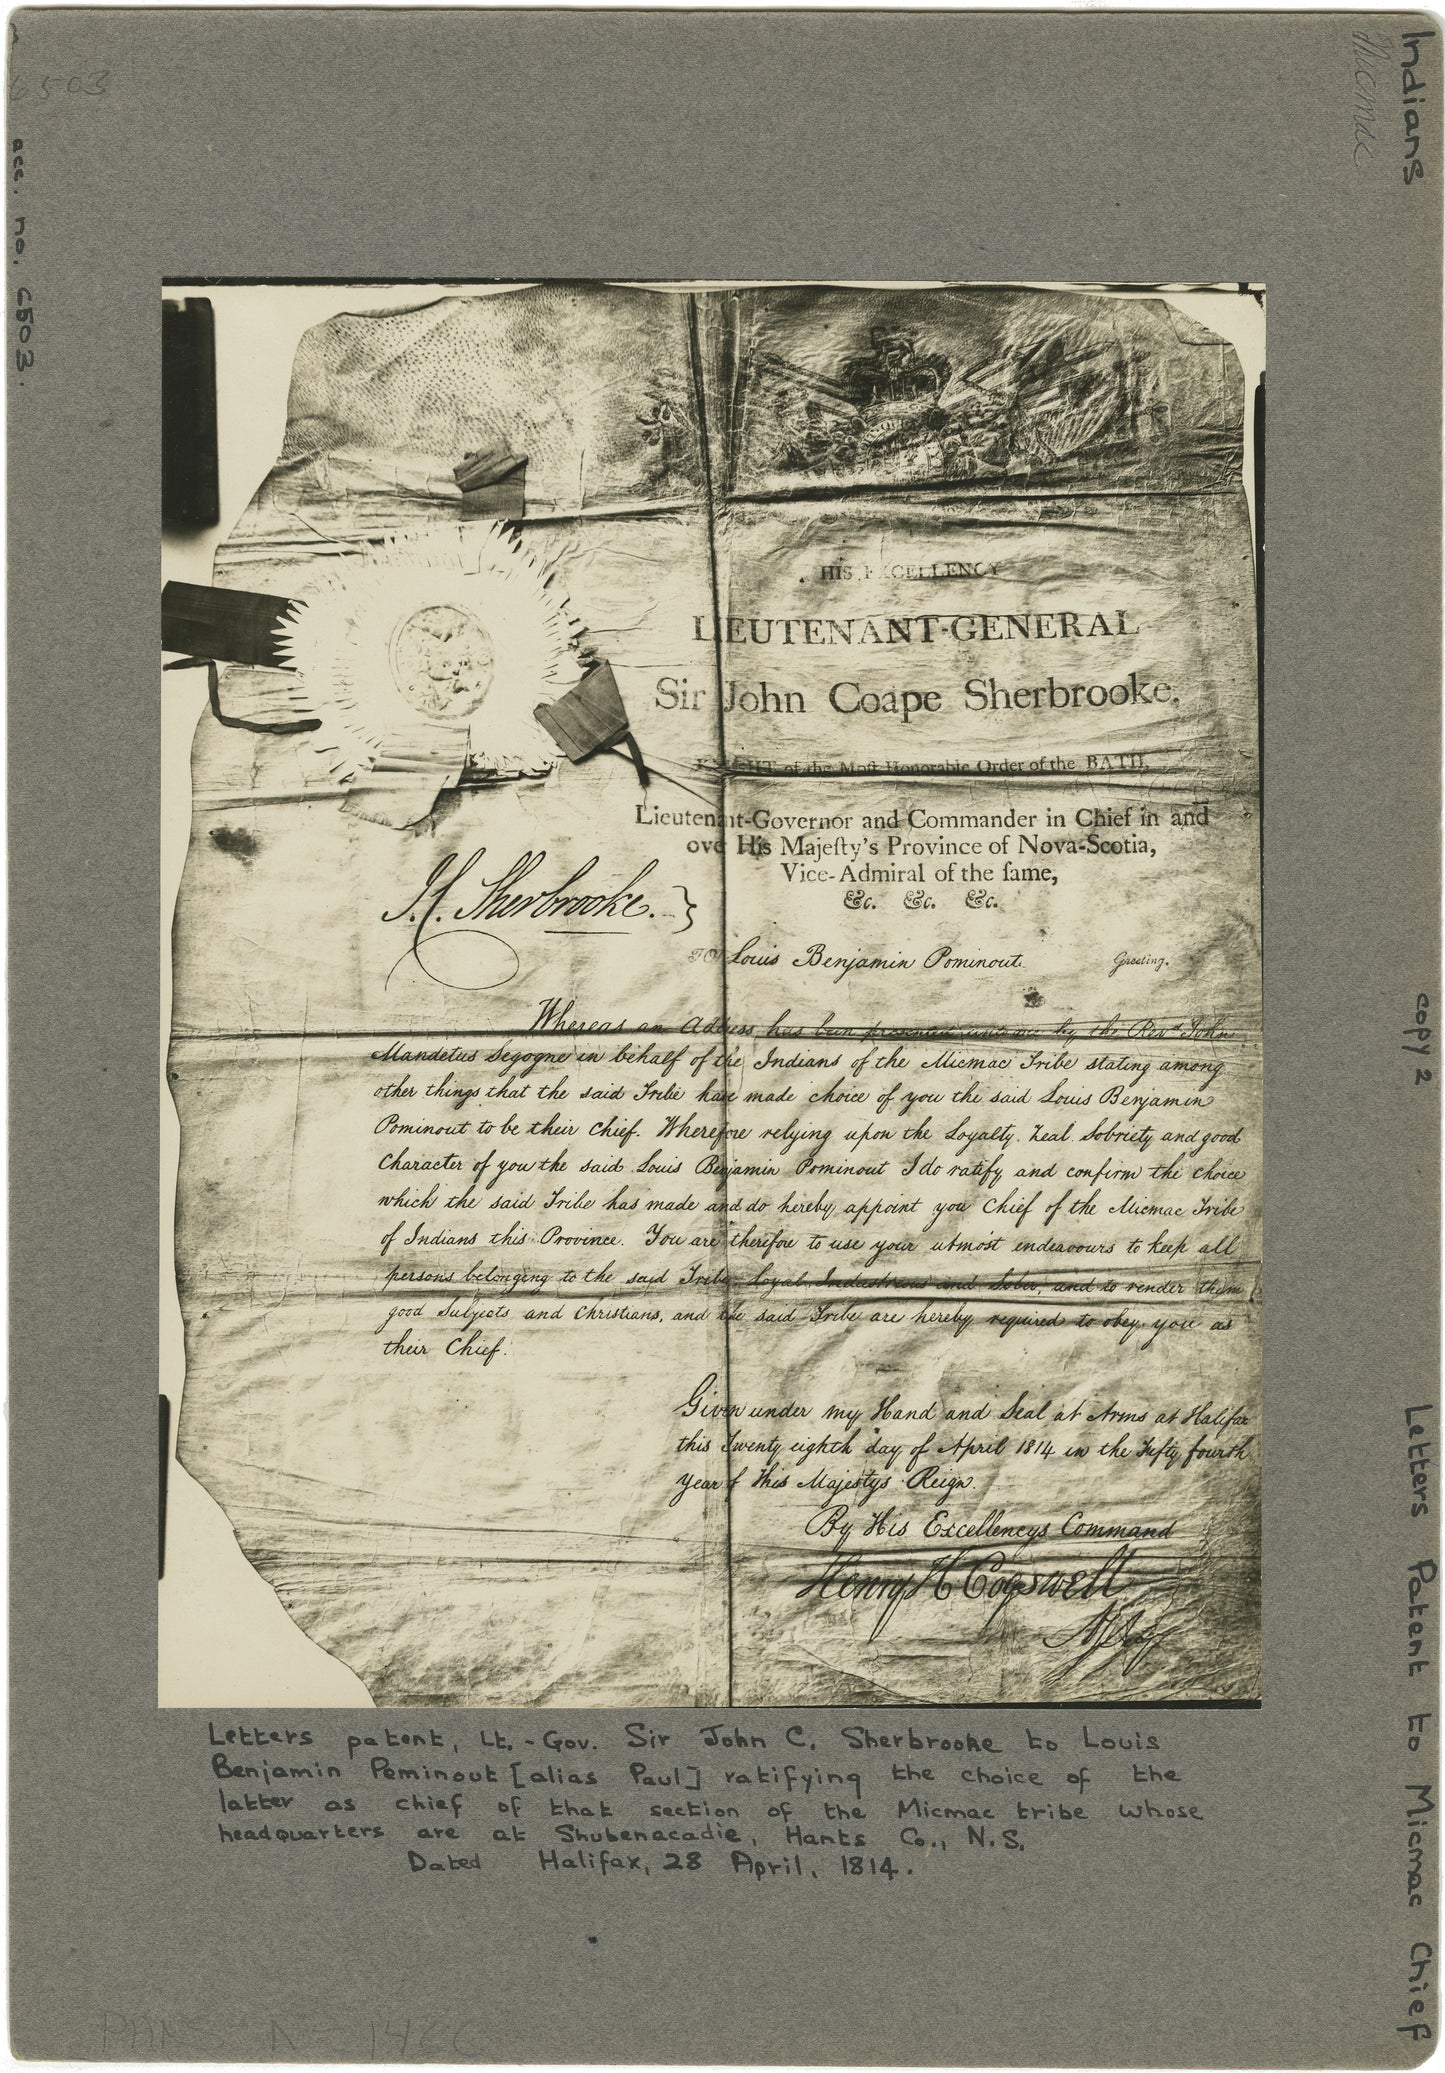 Indians
Micmac
6503
acc. no. 6503.
copy 2
Letters Patent to Micmac Chief
HIS EXCELLENCY
LIEUTENANT-GENERAL
Sir John Coape Sherbrooke,
KNIGHT of the Moſt Honorable Order of the BATH,
Lieutenant-Governor and Commander in Chief in and
over His Majeſty's Province of Nova-Scotia,
Vice-Admiral of the ſame,
&c. &c. &c.
J. C. Sherbrooke. }
TO Louis Benjamin Pominout. Greeting.
Whereas an Address has been presented unto me by the Revd. John
Mandetus Segogne in behalf of the Indians of the Micmac Tribe stating among
other things that the said Tribe have made choice of you the said Louis Benjamin
Pominout to be their Chief. Wherefore relying upon the Loyalty. Zeal. Sobriety and good
Character of you the said Louis Benjamin Pominout I do ratify and confirm the choice
which the said Tribe has made and do hereby appoint you Chief of the Micmac Tribe
of Indians this Province. You are therefore to use your utmost endeavours to keep all
persons belonging to the said Tribe Loyal Industrious and Sober, and to render them
good Subjects and Christians, and the said Tribe are hereby required to obey you as
their Chief.
Given under my Hand and Seal at Arms at Halifax
this Twenty eighth day of April 1814 in the Fifty fourth
Year of His Majestys Reign.
By His Excellencys Command
Henry H Cogswell
Letters patent, Lt.-Gov. Sir John C. Sherbrooke to Louis
Benjamin Peminout [alias Paul] ratifying the choice of the
latter as chief of that section of the Micmac tribe whose
headquarters are at Shubenacadie, Hants Co., N.S.
Dated Halifax, 28 April, 1814.
PANS N-1466